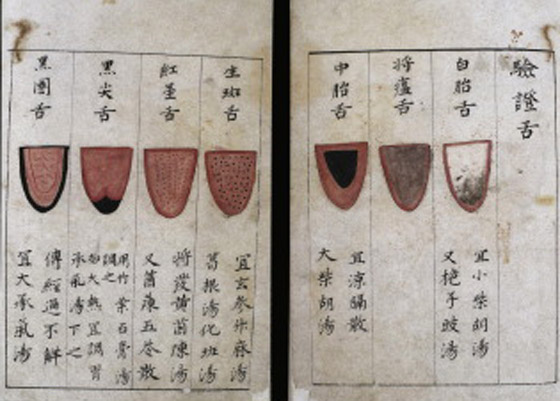 驗證舌
白胎舌
宜小柴胡湯
又梔子豉湯
將瘟舌
中胎舌
宜涼膈散
大柴胡湯
生斑舌
宜玄參升麻湯
葛根湯化斑湯
紅星舌
將發黃茵陳湯
又茵陳五苓散
黑尖舌
用竹葉石膏湯
調之
宜調胃
承氣湯下之
黑圈舌
傳經過不解
宜大承氣湯